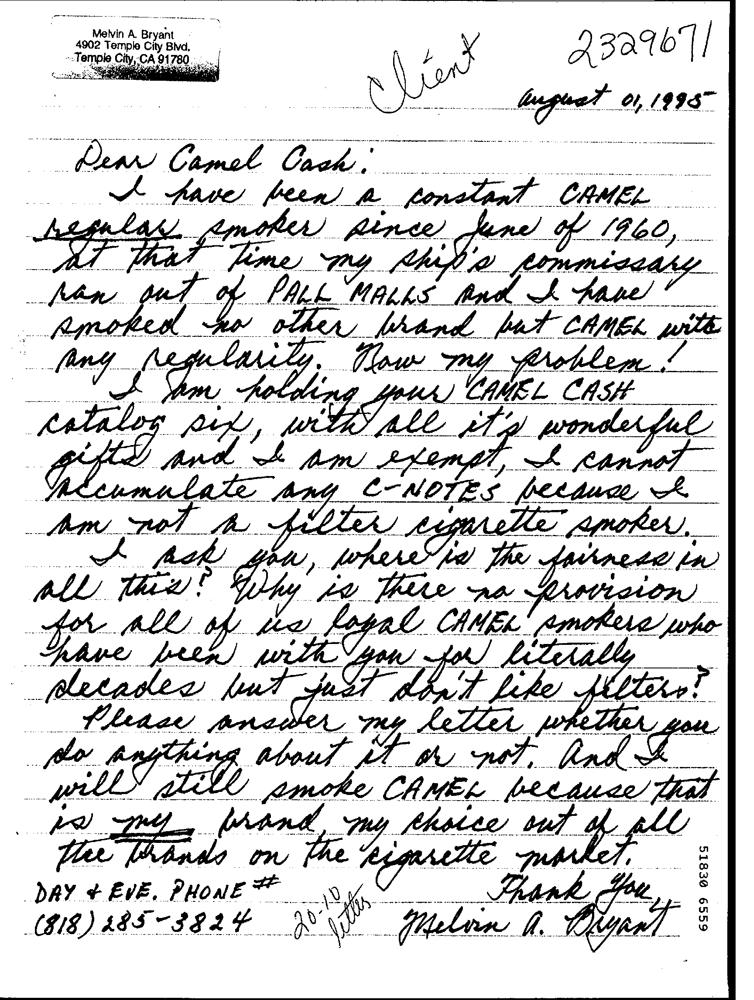 Melvin A. Bryant
4902 Temple City Blvd.
Temple City, CA 91780
Client
2329671
August 01, 1995
Dear Camel Cash:
I have been a constant CAMEL
regular smoker since June of 1960,
at that time my ship's commissary
ran out of PALL MALLS and I have
smoked no other brand but CAMEL with
any regularity. Now my problem!
I am holding your CAMEL CASH
catalog six, with all it's wonderful
gifts and I am exempt, I cannot
accumulate any C-NOTES because I
am not a filter cigarette smoker.
I ask you, where is the fairness in
all this? Why is there no provision
for all of us loyal CAMEL smokers who
have been with you for literally
decades but just don't like filters?
Please answer my letter whether you
do anything about it or not. And I
will still smoke CAMEL because that
is my brand, my choice out of all
the brands on the cigarette market.
DAY & EVE. PHONE #
(818) 285-3824
20-10
letter
Thank You,
Melvin A. Bryant
51830 6559